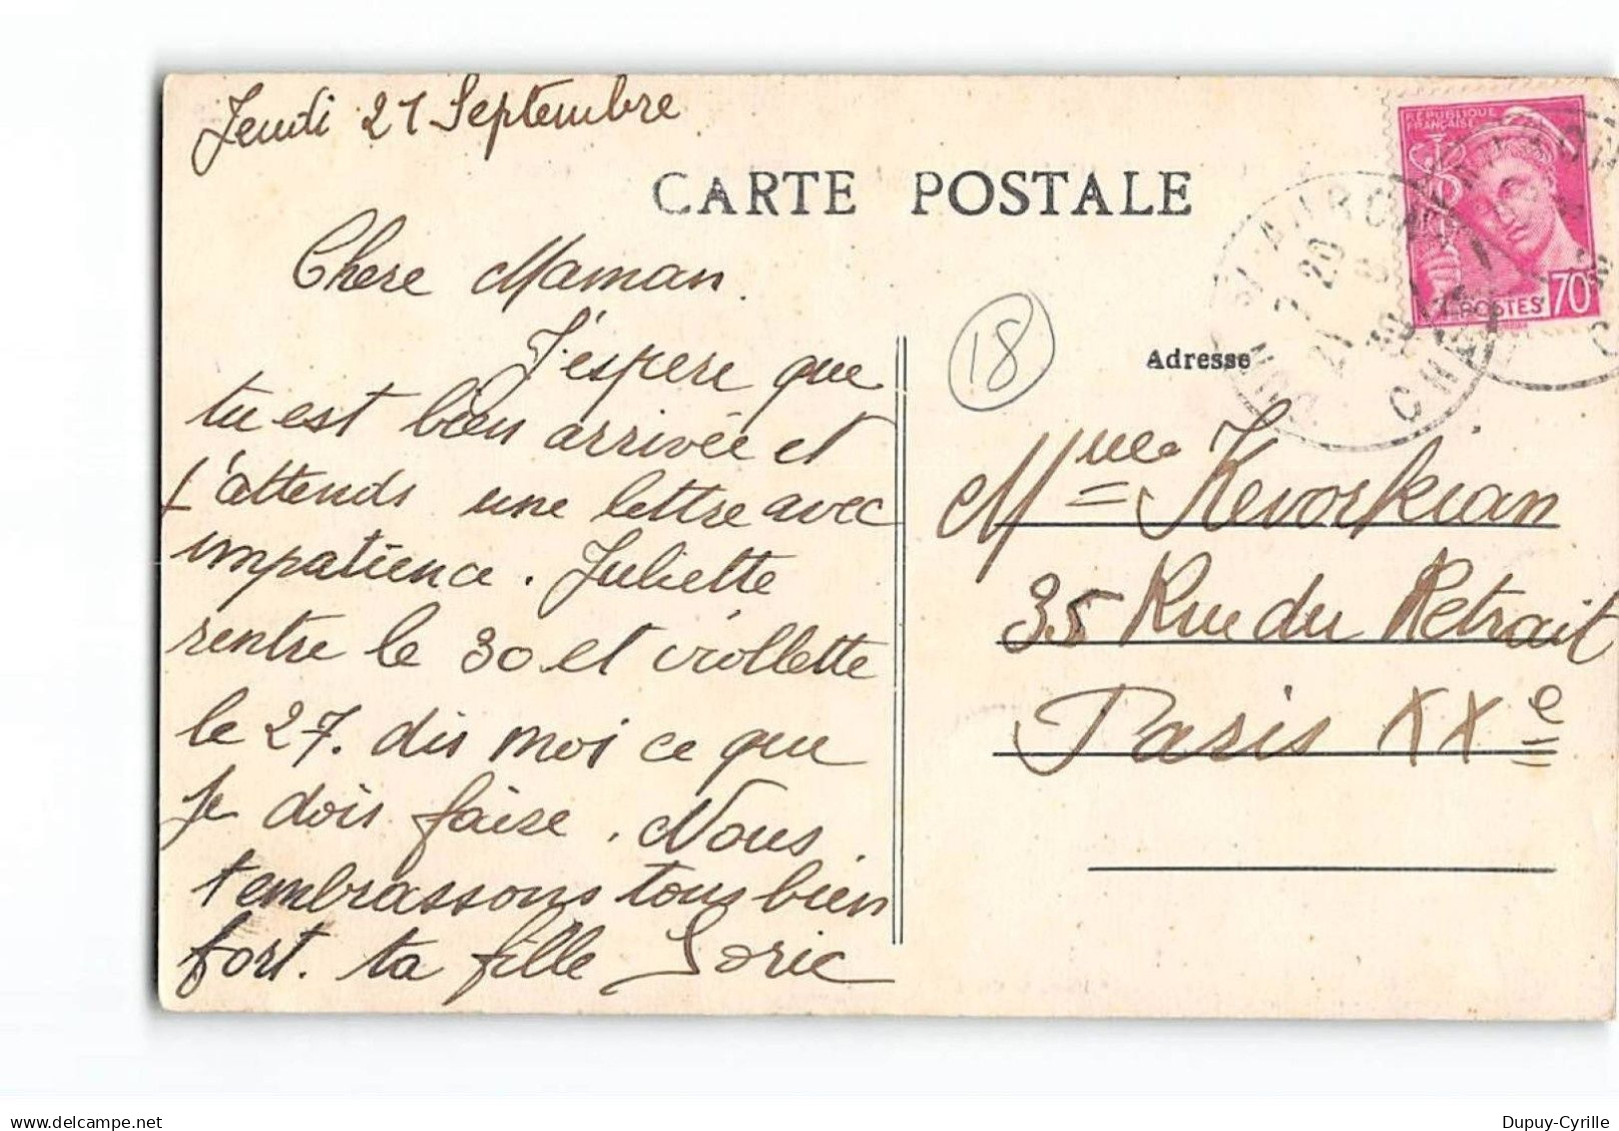 Jeudi 21 Septembre
CARTE POSTALE
Chere Maman.
J'espere que
tu est bien arrivée et
j'attends une lettre avec
impatience. Juliette
rentre le 30 et viollette
le 27. dis moi ce que
je dois faire. Nous
t'embrassons tous bien
fort. ta fille
18
RÉPUBLIQUE
FRANÇAISE
POSTES 70c
Adresse
Mme Kevorkian
35 Rue du Retrait
Paris XXe
delcampe.net
Dupuy-Cyrille